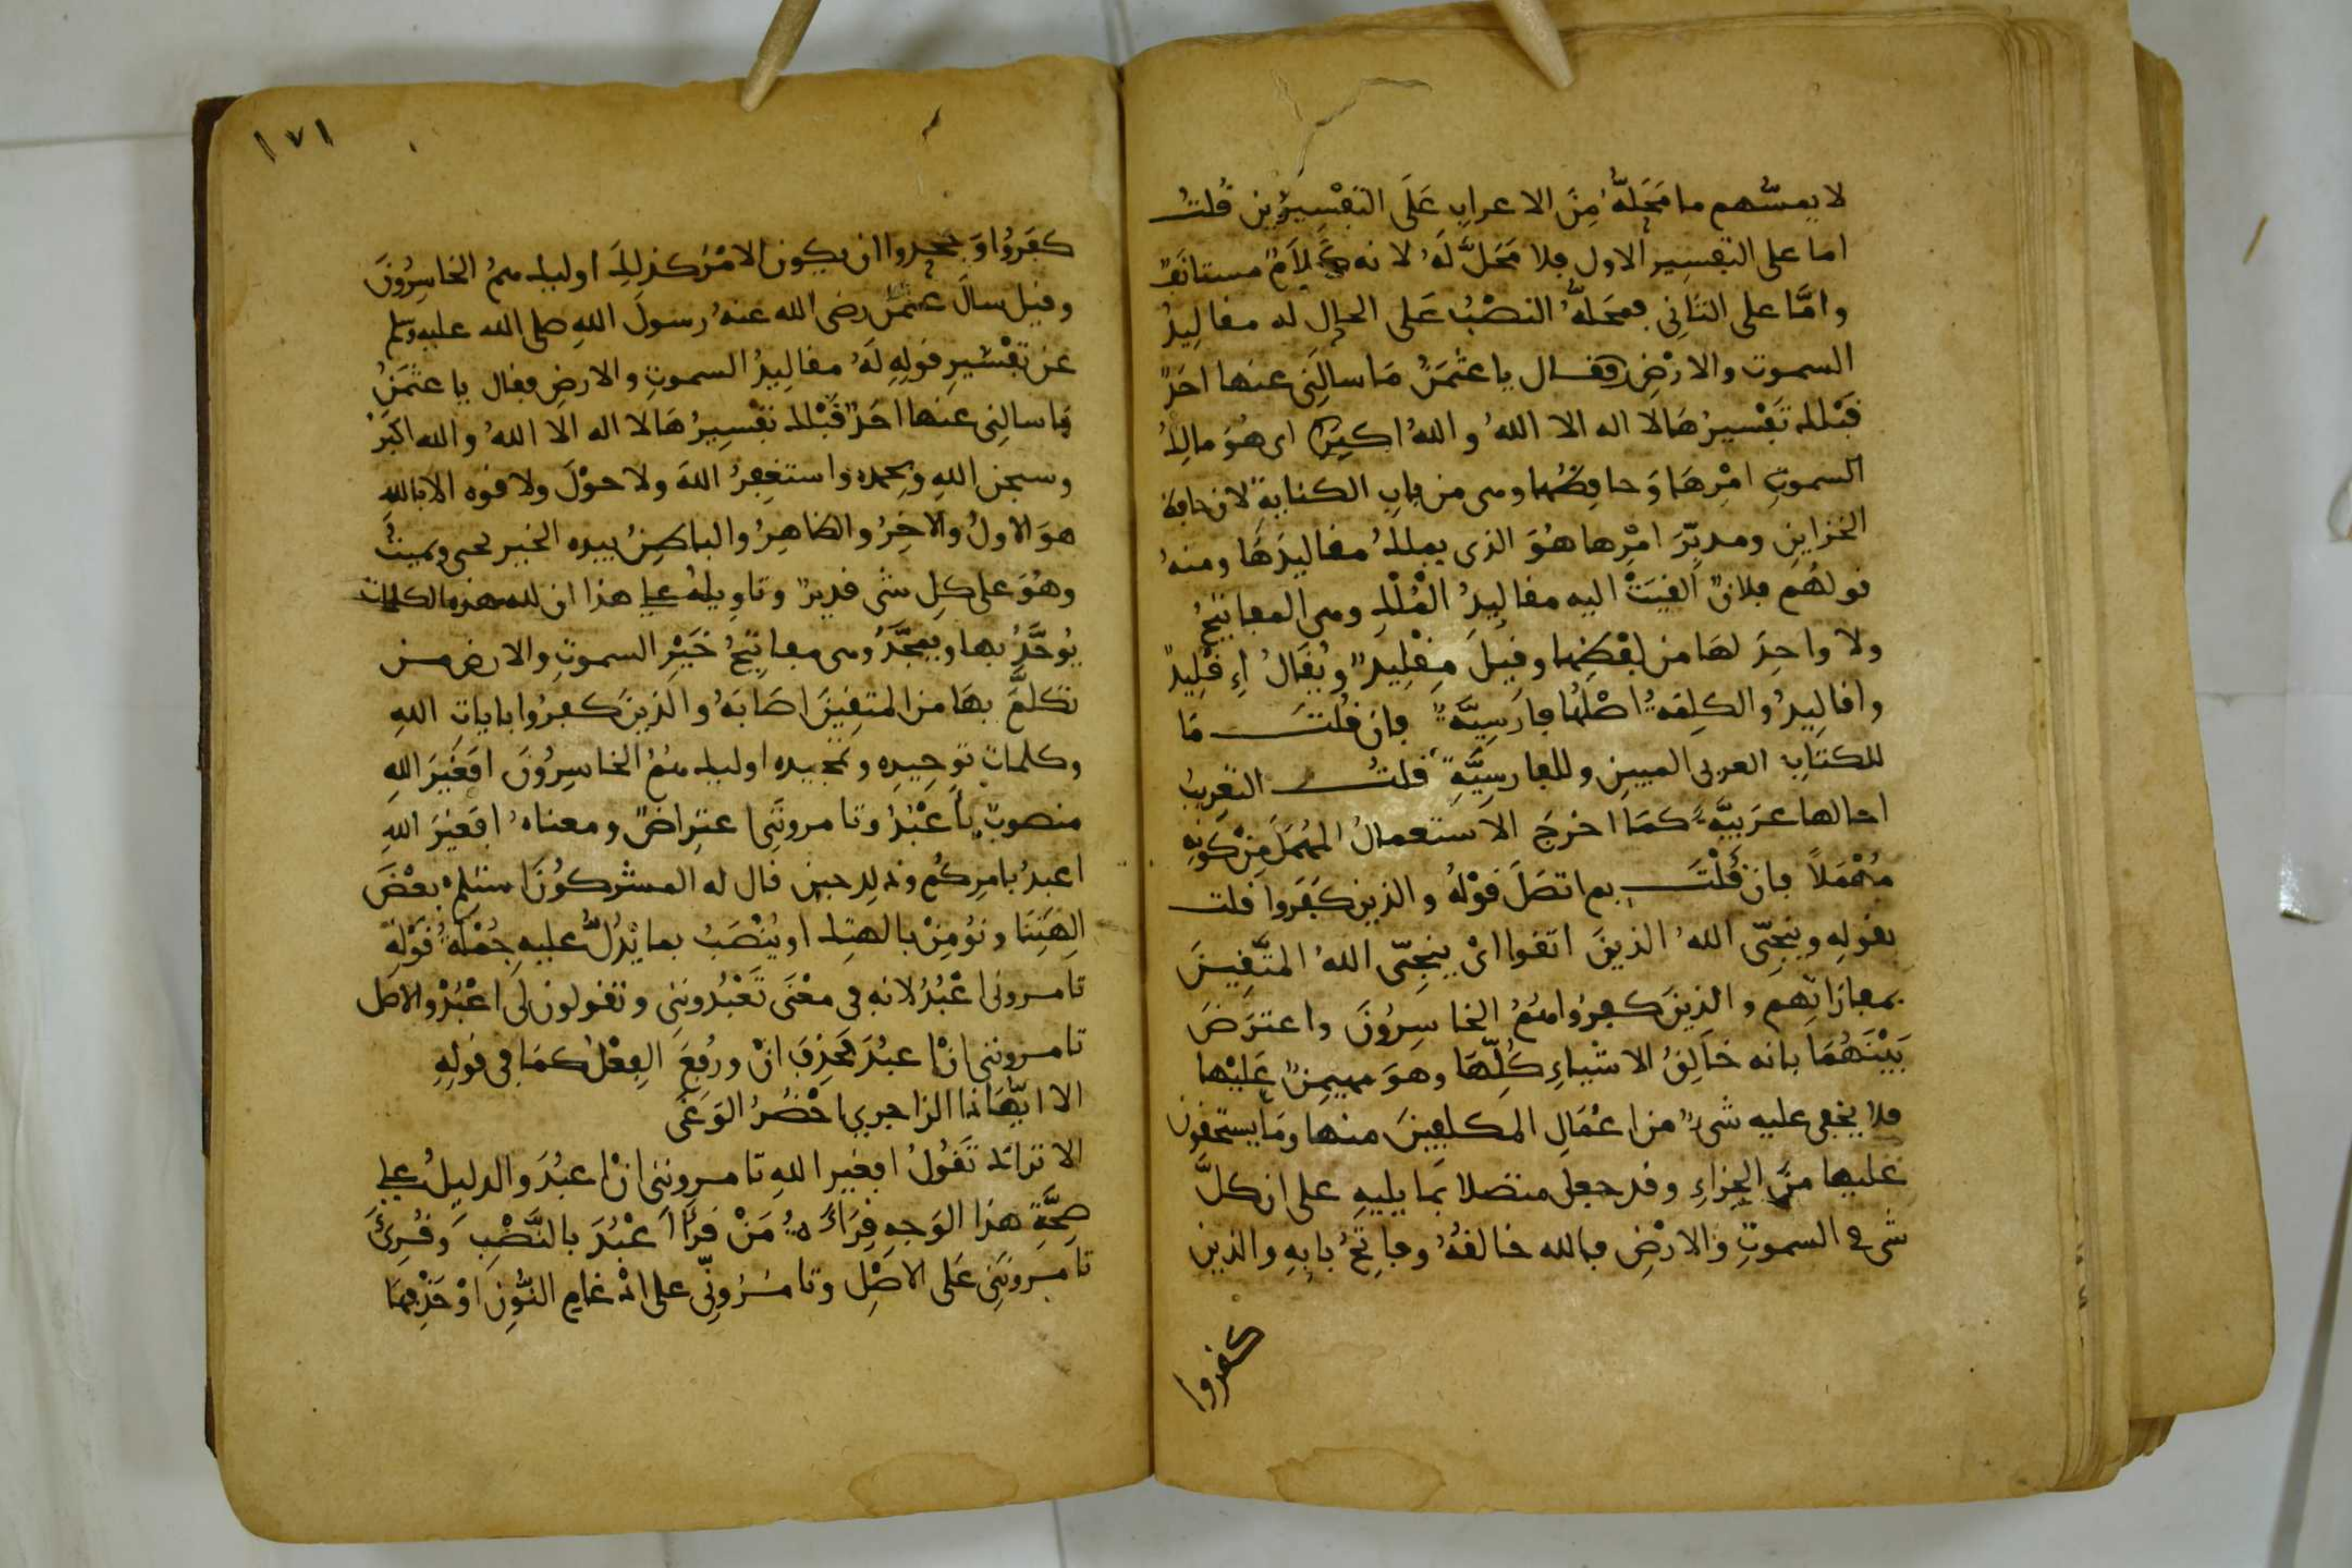 لا يمسّهم ما مَحَلُّهُ مِنَ الاعرابِ عَلَى التفسِيرَين قُلتُ
اما على التفسِير الاول فلا مَحَلَّ لَهُ لانه كَلَامٌ مستانَفٌ
وامَّا على الثانِي فمحَلُّهُ النصْبُ عَلى الحال له مقالِيدُ
السموت والارْضِ فقال يا عثمَنُ مَا سالنِى عنها احَدٌ
قَبْلك تَفْسيرُهَا لا اله الا اللهُ واللهُ اكبر اى هُوَ مالِكُ
السموتِ امْرِهَا وَحافِظُها وهى من بابِ الكنايةِ لان حافظ
الخزاينِ ومدبِّرَ امْرِها هُوَ الذى يملكُ مقاليدَهَا ومنهُ
قولهُم فلانٌ القيَتْ اليه مقاليدُ المُلْكِ وهى المفاتِيحُ
ولا واحِدَ لهَا من لفظِها وقيلَ مِقْلِيدٌ ويُقَالُ اِقْلِيدٌ
واقالِيدُ والكلِمَةُ اصْلُها فارسِيَّةٌ فان قُلتَ مَا
للكتابِ العربى المبينِ وللفارسِيَّةِ قلتُ التعْرِيبُ
احالها عرَبيَّةً كمَا اخرجَ الاستعمالُ المُهمَلَ مِنْ كَوْنِهِ
مُهْمَلاً فان قُلْتَ بم اتصَلَ قوْلهُ والذين كفَروا قلت
بقولِهِ وينجِّى اللهُ الذينَ اتقوا اىْ ينجِّى اللهُ المتَّقِينَ
بمفازاتِهم والذِينَ كفروا هُمُ الخاسِرُونَ واعترَضَ
بَيْنَهُمَا بانه خالِقُ الاشْياءِ كُلِّهَا وهوَ مهيمِنٌ عَلَيْها
فلا يخفى عليه شىءٌ من اعْمَالِ المكلفِينَ منها ومَا يستحقون
عليها مِنَ الجزاءِ وقد جعل متصلا بما يليهِ على ان كلَّ
شى فى السموتِ والارْضِ فالله خالقُهُ وفاتِحُ بابِهِ والذين
كفروا
١٧١
كفَرُوا وَجحدوا ان يكون الامْرُ كذلِكَ اوليك همُ الخاسِرُونَ
وقيل سالَ عثمَنُ رضى الله عنهُ رسولَ اللهِ صلى الله عليه وسلم
عن تفْسِيرِ قولِهِ لَهُ مقالِيدُ السموتِ والارضِ فقال يا عثمَنُ
مَا سالنِى عنها احَدٌ قَبْلك تفسِيرُهَا لا اله الا اللهُ والله اكبَرُ
وسبحن اللهِ وبحمده واستغفِرُ اللهَ ولا حوْلَ ولا قوه الا بالله
هوَ الاولُ والاخِرُ والظاهِرُ والباطِنُ بيده الخير يحى ويميتُ
وهُوَ على كلِ شى قديرٌ وتاويلهُ على هذا ان لله هذه الكلمات
يُوحَّدُ بها ويمجَّدُ وهى مفاتِيحُ خَيْرِ السموتِ والارض من
تكلَّمَ بهَا من المتقِينَ اصَابَهُ والذِينَ كفرُوا باياتِ اللهِ
وكلماتِ توحِيدِه وتمجيده اوليك همُ الخاسِرُونَ افَغَيْرَ اللهِ
منصوبٌ باَعْبُدُ وتامرونَنِى اعتِراضٌ ومعناهُ افغَيْرَ اللهِ
اعبدُ بامرِكُم وذلك حين قال له المشركُونَ استلم بعْضَ
الِهَتِنَا ونؤمِنْ بالهتِك او يُنْصَبُ بما يَدُلُّ عليه جُمْلَةُ قَوْلِهِ
تامرونى اعْبُدُ لانه فى معْنَى تُعَبِّدُونَنِى وتقولون لى اعْبُدْ والاصل
تامروننى انْ اعبُدَ فحَذِفَ انْ ورُفِعَ الفِعْلُ كمَا فى قولِهِ
الا ايّهَاذا الزاجِرِي احْضُرُ الوَغَى
الا تراك تَقُولُ افغَيرَ اللهِ تامروننى انْ اعبُدَ والدليلُ على
صحَّةِ هذا الوَجهِ قِرَاءَةُ مَنْ قَرَا اَعْبُدَ بالنَّصْبِ وَقُرِئَ
تامرونَنِى عَلى الاصْلِ وتامرُونِّى على ادْغامِ النُّونِ اوْ حَذْفِهَا